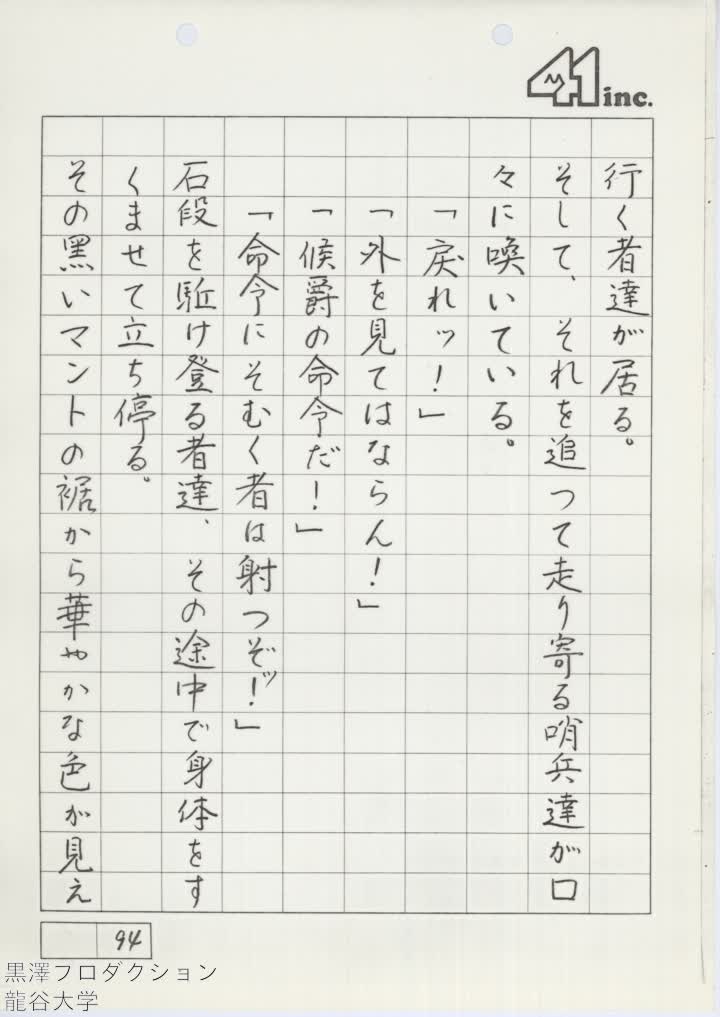 41 inc.
行く者達が居る。
そして、それを追つて走り寄る哨兵達が口
々に喚いている。
「戻れッ!」
「外を見てはならん!」
「候爵の命令だ!」
「命令にそむく者は射つぞッ!」
石段を駈け登る者達、その途中で身体をす
くませて立ち停る。
その黒いマントの裾から華やかな色が見え
94
黒澤フロダクション
龍谷大学